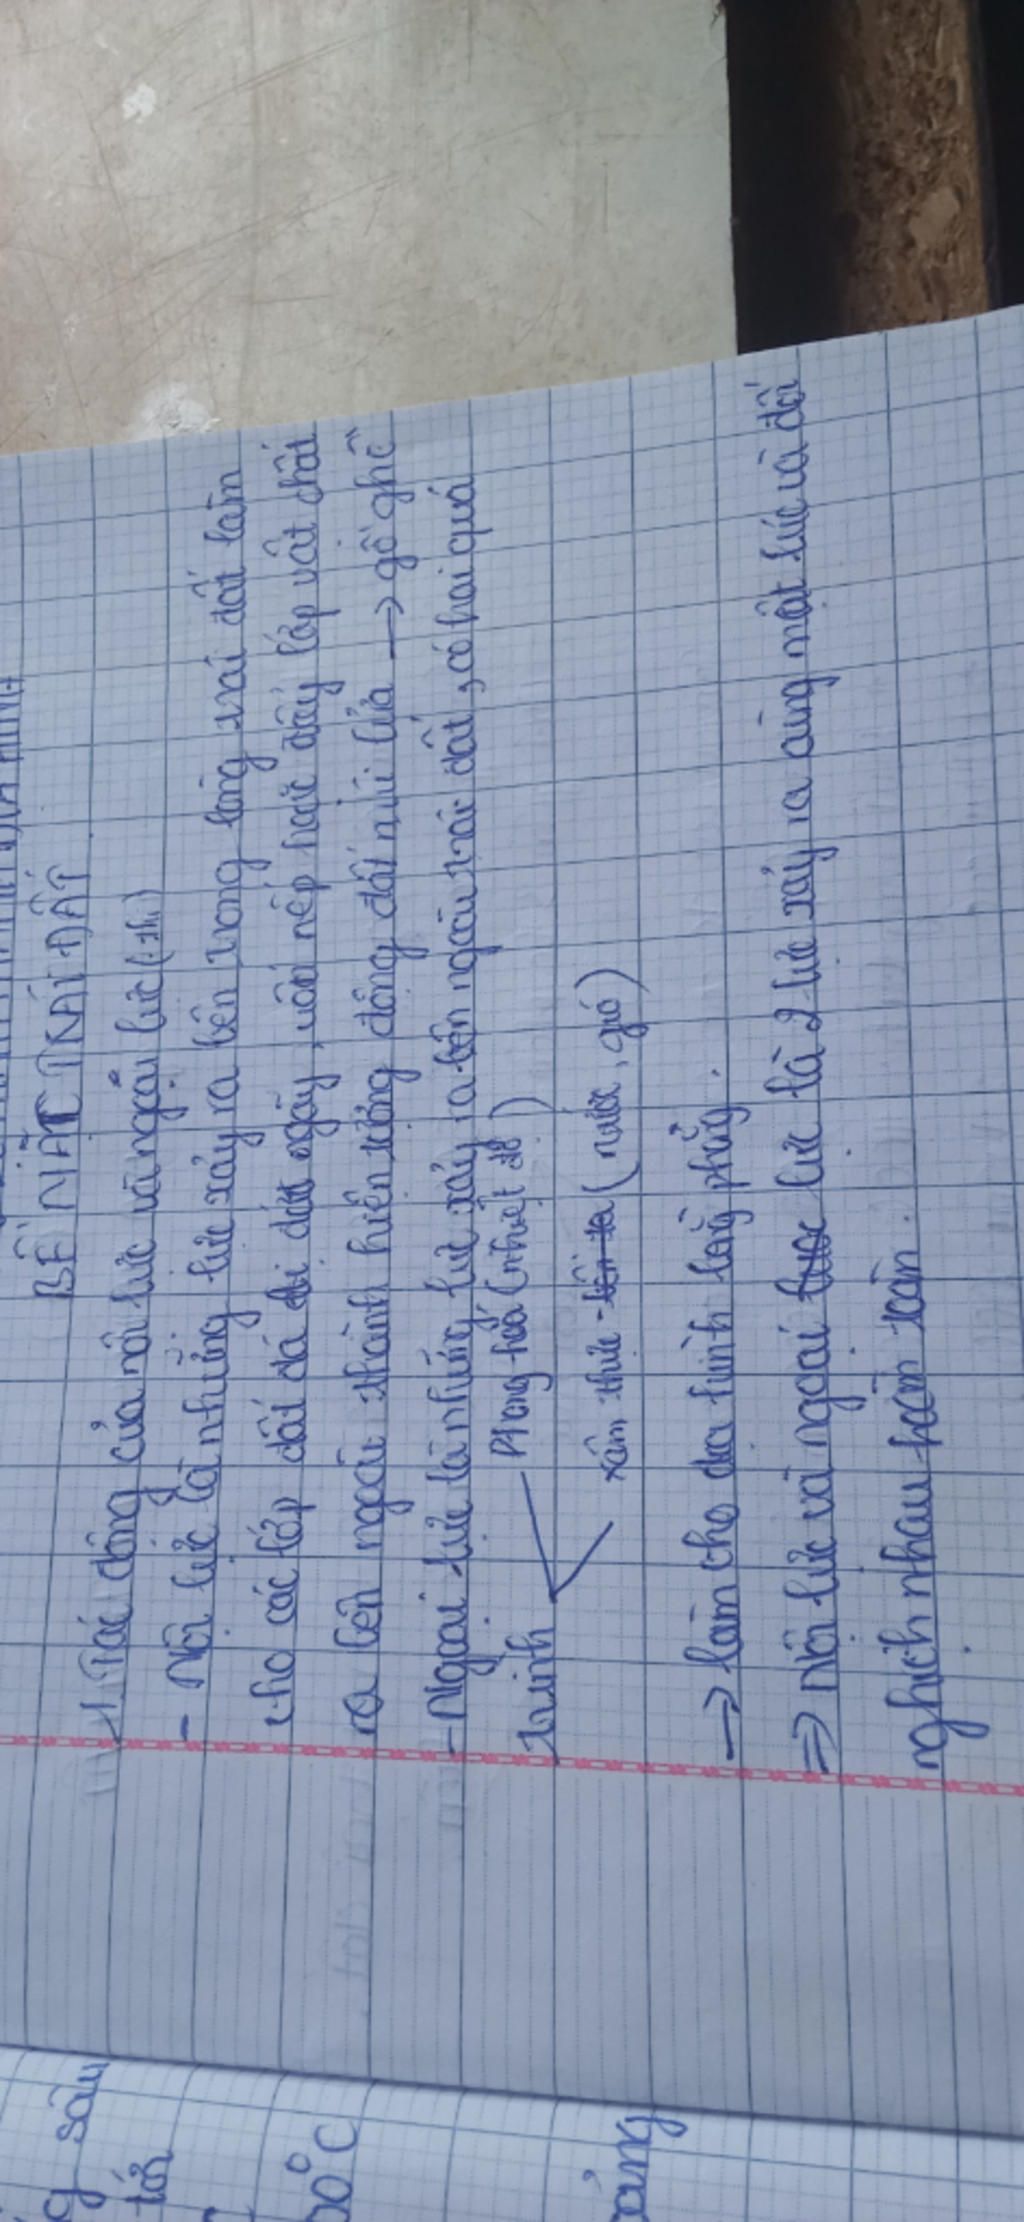 BỀ MẶT TRÁI ĐẤT
1. Tác động của nội lực và ngoại lực (: thi)
- Nội lực là những lực xảy ra bên trong lòng trái đất làm
cho các lớp đất đá bị đứt gãy, uốn nếp hoặc đẩy lớp vật chất
ra bên ngoài thành hiện tượng động đất núi lửa → gồ ghề
- Ngoại lực là những lực xảy ra bên ngoài trái đất, có hai quá
trình
Phong hoá (nhiệt độ)
xâm thực - (nước, gió)
→ làm cho địa hình bằng phẳng.
⇒ Nội lực và ngoại lực là 2 lực xảy ra cùng một lúc và đối
nghịch nhau hoàn toàn.
sâu
tới
00°C